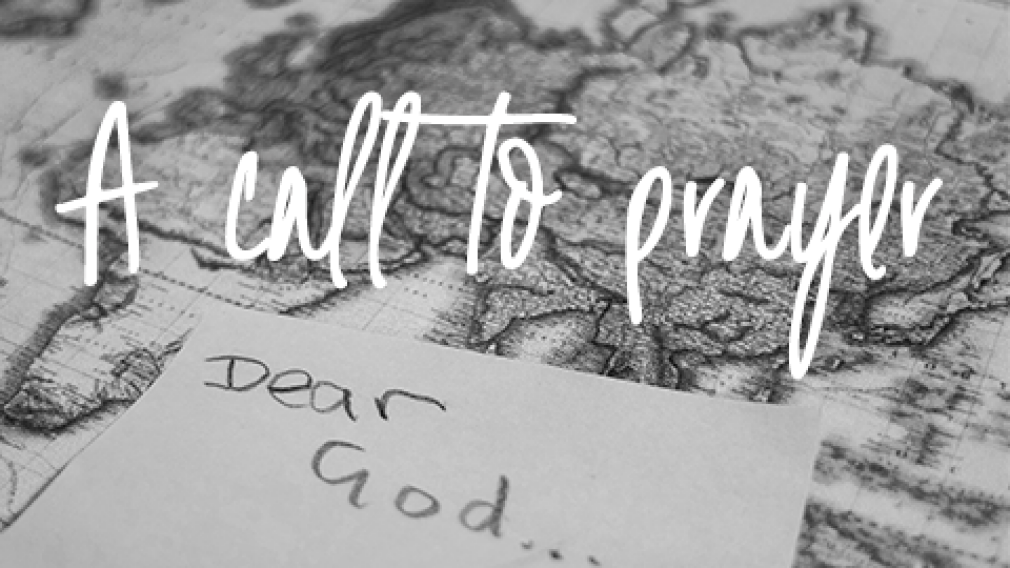 A call to prayer
Dear
God...